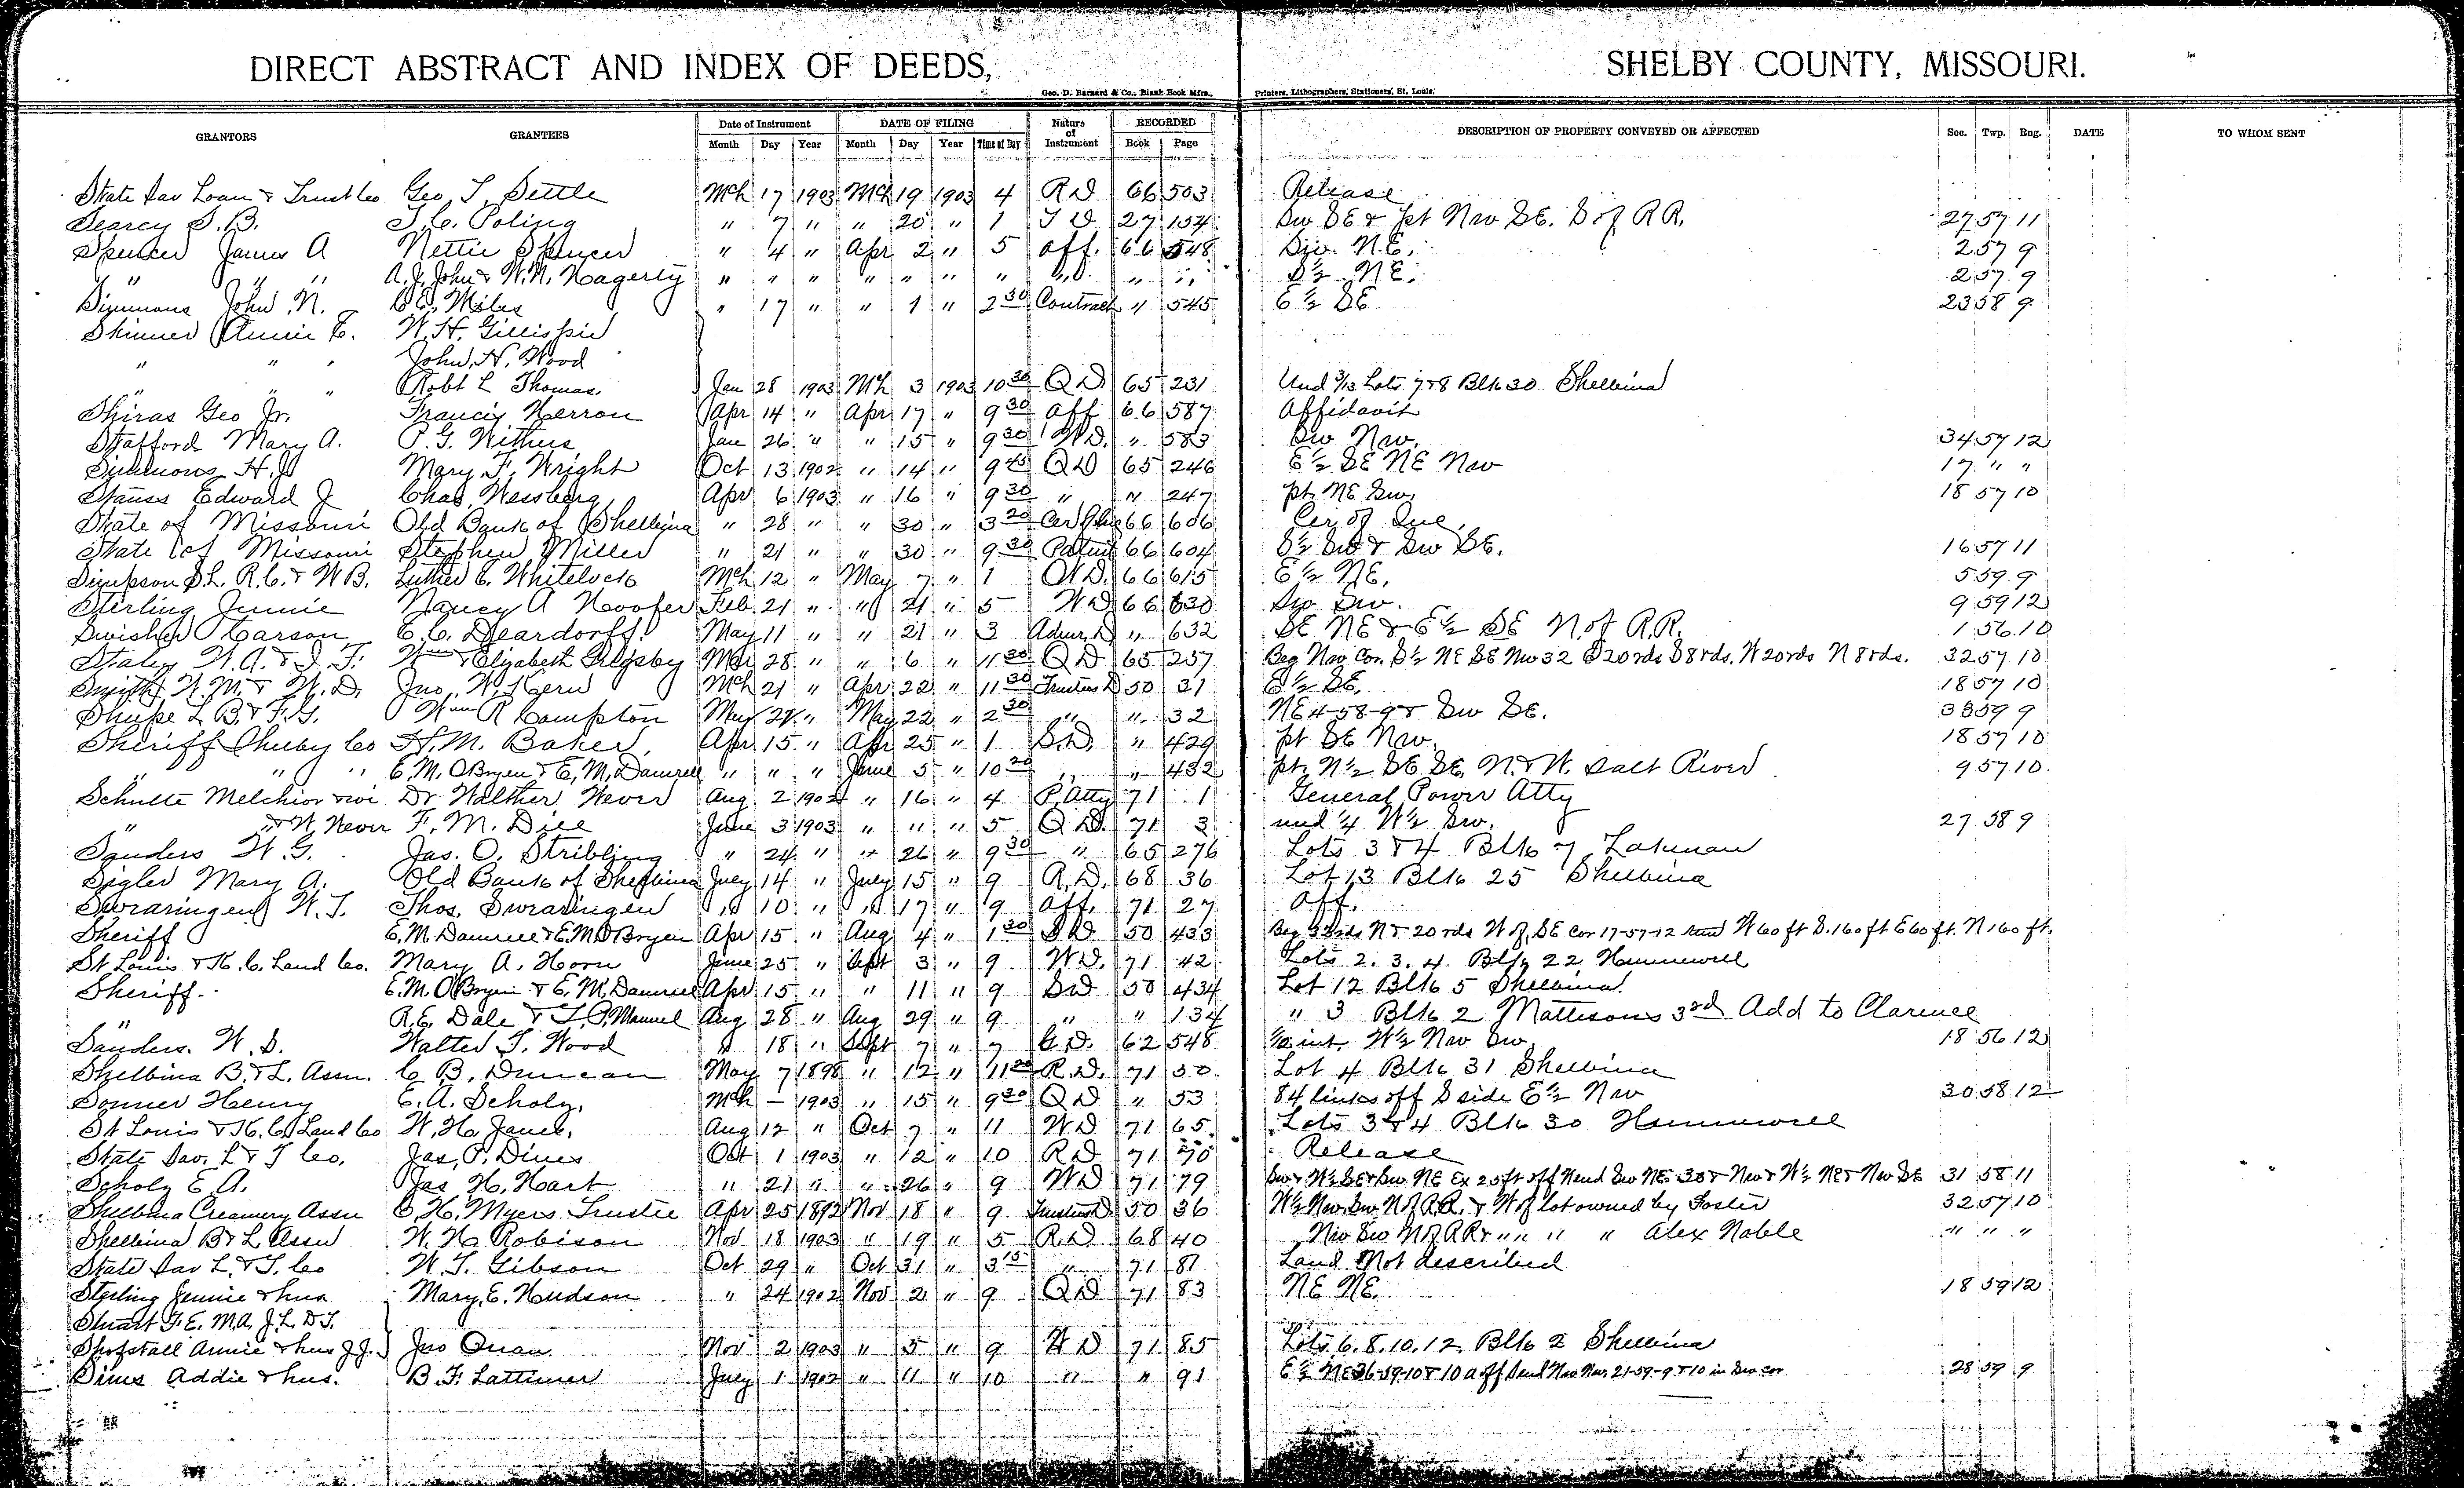 DIRECT ABSTRACT AND INDEX OF DEEDS, SHELBY COUNTY, MISSOURI.
Geo. D. Barnard & Co., Blank Book Mfrs., Printers, Lithographers, Stationers, St. Louis.
GRANTORS GRANTEES Date of Instrument DATE OF FILING Nature of Instrument RECORDED DESCRIPTION OF PROPERTY CONVEYED OR AFFECTED Sec. Twp. Rng. DATE TO WHOM SENT
Month Day Year Month Day Year Time of Day Book Page
State Sav Loan & Trust Co Geo T. Settle Mch 17 1903 Mch 19 1903 4 R D 66 503 Release
Searcy S. B. J. C. Poling " 7 " " 20 " 1 T D 27 154 Sw SE & pt Nw SE. S of R R. 27 57 11
Spencer James A Nettie Spencer " 4 " Apr 2 " 5 Aff. 66 548 N.E. 2 57 9
" " " A. J. John & W. N. Hagerty " " " " " " " " " S½ NE. 2 57 9
Simmons John N. C. E. Miles " 17 " " 1 " 2 30 Contract " 545 E ½ SE 23 58 9
Skinner Annie E. W. H. Gillispie
" " " John H. Wood
" " " Robt L Thomas Jan 28 1903 Mch 3 1903 10 30 Q D 65 231 Und 3/13 Lots 7 & 8 Blk 30 Shelbina
Shiras Geo Jr. Francis Herron Apr 14 " Apr 17 " 9 30 Aff 66 587 Affidavit
Stafford Mary A. P. G. Withers Jan 26 " " 15 " 9 30 W D. " 583 Sw Nw. 34 57 12
Simmons H. J Mary F. Wright Oct 13 1902 " 14 " 9 45 Q D 65 246 E ½ SE NE Nw 17 " "
Stauss Edward J Chas Wessberg Apr 6 1903 " 16 " 9 30 " " 247 pt NE Sw. 18 57 10
State of Missouri Old Bank of Shelbina " 28 " " 30 " 3 20 66 606 Cer of Inc.
State of Missouri Stephen Miller " 21 " " 30 " 9 30 Patent 66 604 S½ Sw & Sw SE. 16 57 11
Simpson S. L. R. C. & W B. Luther C. Whitelock Mch 12 " May 7 " 1 W D. 66 615 E ½ NE. 5 59 9
Sterling Jennie Nancy A Hoofer Feb. 21 " " 21 " 5 W D 66 630 Sw Sw. 9 59 12
Swisher Carson E. C. Deardorff May 11 " " 21 " 3 Admr. D " 632 SE NE & E ½ SE N. of R. R. 1 56 10
Staley W. A. & J. F. Wm & Elizabeth Grigsby Mar 28 " " 6 " 11 30 Q D 65 257 Beg Nw Cor. S½ NE SE Nw 32 E 20 rds S 8 rds. W 20 rds N 8 rds. 32 57 10
Smith W. M. & W. D. Jno. W. Kern Mch 21 " Apr 22 " 11 30 Trustees D 50 31 E ½ SE. 18 57 10
Shupe L. B. & F. G. Wm R Compton May 22 " May 22 " 2 30 " " 32 NE 4-58-9 & Sw SE. 33 59 9
Sheriff Shelby Co H. M. Baker. Apr 15 " Apr 25 " 1 S. D. " 429 pt SE Nw. 18 57 10
" " " E. M. OBryen & E. M. Damrell " " " June 5 " 10 20 " " 432 pt N½ SE SE. N. & W. Salt River 9 57 10
Schulte Melchior & wi Dr Walther Wever Aug. 2 1902 " 16 " 4 P. Atty 71 1 General Power Atty
" " & W. Wever F. M. Dice June 3 1903 " " " 5 Q D. 71 3 und ¼ W½ Sw. 27 58 9
Sanders W. G. Jas. O. Stribling " 24 " " 26 " 9 30 " 65 276 Lots 3 & 4 Blk 7 Lakenan
Sigler Mary A. Old Bank of Shelbina July 14 " July 15 " 9 R. D. 68 36 Lot 13 Blk 25 Shelbina
Swearingen W. T. Thos. Swearingen " 10 " " 17 " 9 Aff. 71 27 Aff.
Sheriff E. M. Damrell & E. M. OBryen Apr 15 " Aug 4 " 1 30 S D 50 433 Beg rds N & 20 rds W of SE Cor 17-57-12 W 60 ft S. 160 ft E 60 ft. N 160 ft.
St Louis & K. C. Land Co. Mary A. Horn June 25 " Sept 3 " 9 W D. 71 42 Lots 2. 3. 4. Blk 22 Hunnewell
Sheriff. E. M. OBryen & E. M. Damrell Apr 15 " " 11 " 9 S D 50 434 Lot 12 Blk 5 Shelbina
" R. E. Dale & T. P. Manuel Aug 28 " Aug 29 " 9 " " 134 " 3 Blk 2 Mattesons 3rd Add to Clarence
Sanders. W. S. Walter T. Wood " 18 " Sept 7 " 7 62 548 int. W½ Nw Sw 18 56 12
Shelbina B. & L. Assn. C B. Duncan May 7 1898 " 12 " 11 20 R. D. 71 50 Lot 4 Blk 31 Shelbina
Sonner Henry E. A. Scholz. Mch — 1903 " 15 " 9 30 Q D " 53 84 links off S side E ½ Nw 30 58 12
St Louis & K. C. Land Co W. H. Janes. Aug 12 " Oct 7 " 11 W D 71 65 Lots 3 & 4 Blk 30 Hunnewell
State Sav. L & T Co. Jas. P. Dines Oct 1 1903 " 12 " 10 R D 71 70 Release
Scholz E. A. Jas H. Hart " 21 " " 26 " 9 W D 71 79 Sw & W½ SE & Sw NE Ex 25 ft off N end Sw NE 30 & Nw & W½ NE & Nw SE 31 58 11
Shelbina Creamery Assn C. H. Myers Trustee Apr 25 1892 Nov 18 " 9 Trustees D 50 36 W½ Nw Sw N of R. R. & W of lot owned by Foster 32 57 10
Shelbina B & L Assn W. H. Robison Nov 18 1903 " 19 " 5 R. D 68 40 Nw Sw N of R R & " " " " Alex Noble " " "
State Sav L. & T. Co W. T. Gibson Oct 29 " Oct 31 " 3 15 " 71 81 Land Not described
Sterling Jennie & hus Mary E. Hudson " 24 1902 Nov 2 " 9 Q D 71 83 NE NE. 18 59 12
Stuart F. E. M. A. J. L. D. T.
Shofstall Annie & hus J J. Jno Quan Nov 2 1903 " 5 " 9 W D 71 85 Lots 6. 8. 10. 12. Blk 2 Shelbina
Sims Addie & hus. B. F. Lattimer July 1 1902 " 11 " 10 " " 91 E ½ NE 36-59-10 & 10 a off S end Nw Nw. 21-59-9 & 10 in Sw cor 28 59 9